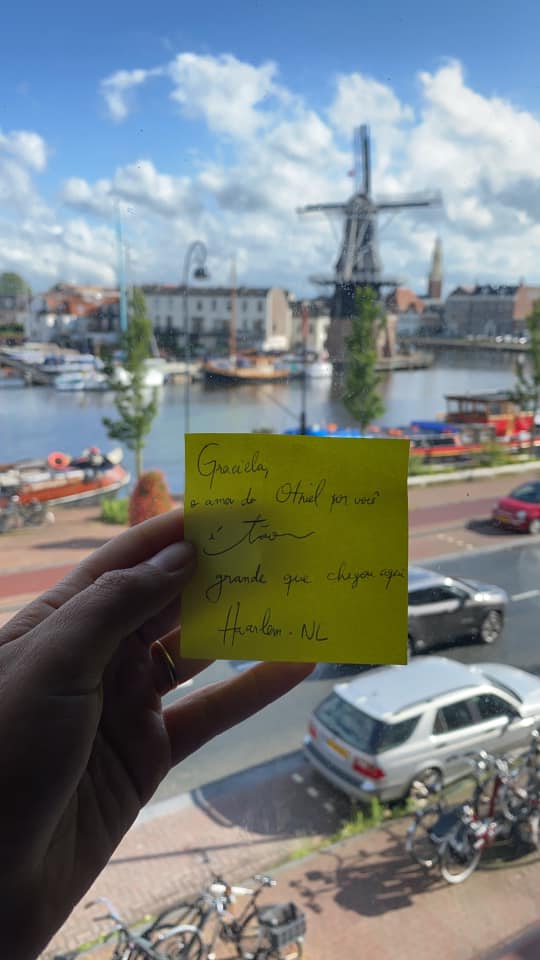 Graciela,
o amor do Otriel por você
é tão
grande que chegou aqui
Haarlem - NL